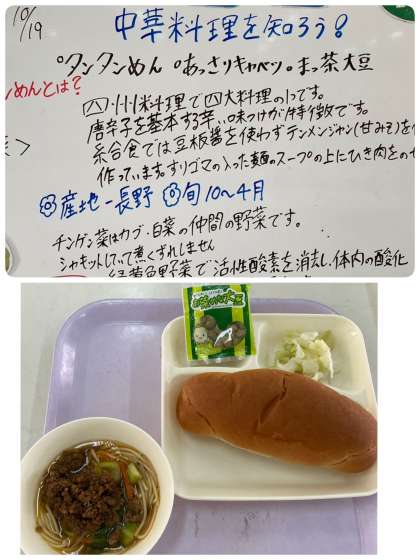 10/19
中華料理を知ろう!
・タンタンめん ・あっさりキャベツ ・まっ茶大豆
めんとは?
四川料理で四大料理の1つです。
唐辛子を基本する辛い味つけが特徴です。
給食では豆板醤を使わずテンメンジャン(甘みそ)を
作っています。すりゴマの入った麺のスープの上にひき肉をのせ
産地-長野 旬10〜4月
チンゲン菜はカブ・白菜の仲間の野菜です。
シャキッとして煮くずれしません
緑黄色野菜で活性酸素を消去し、体内の酸化